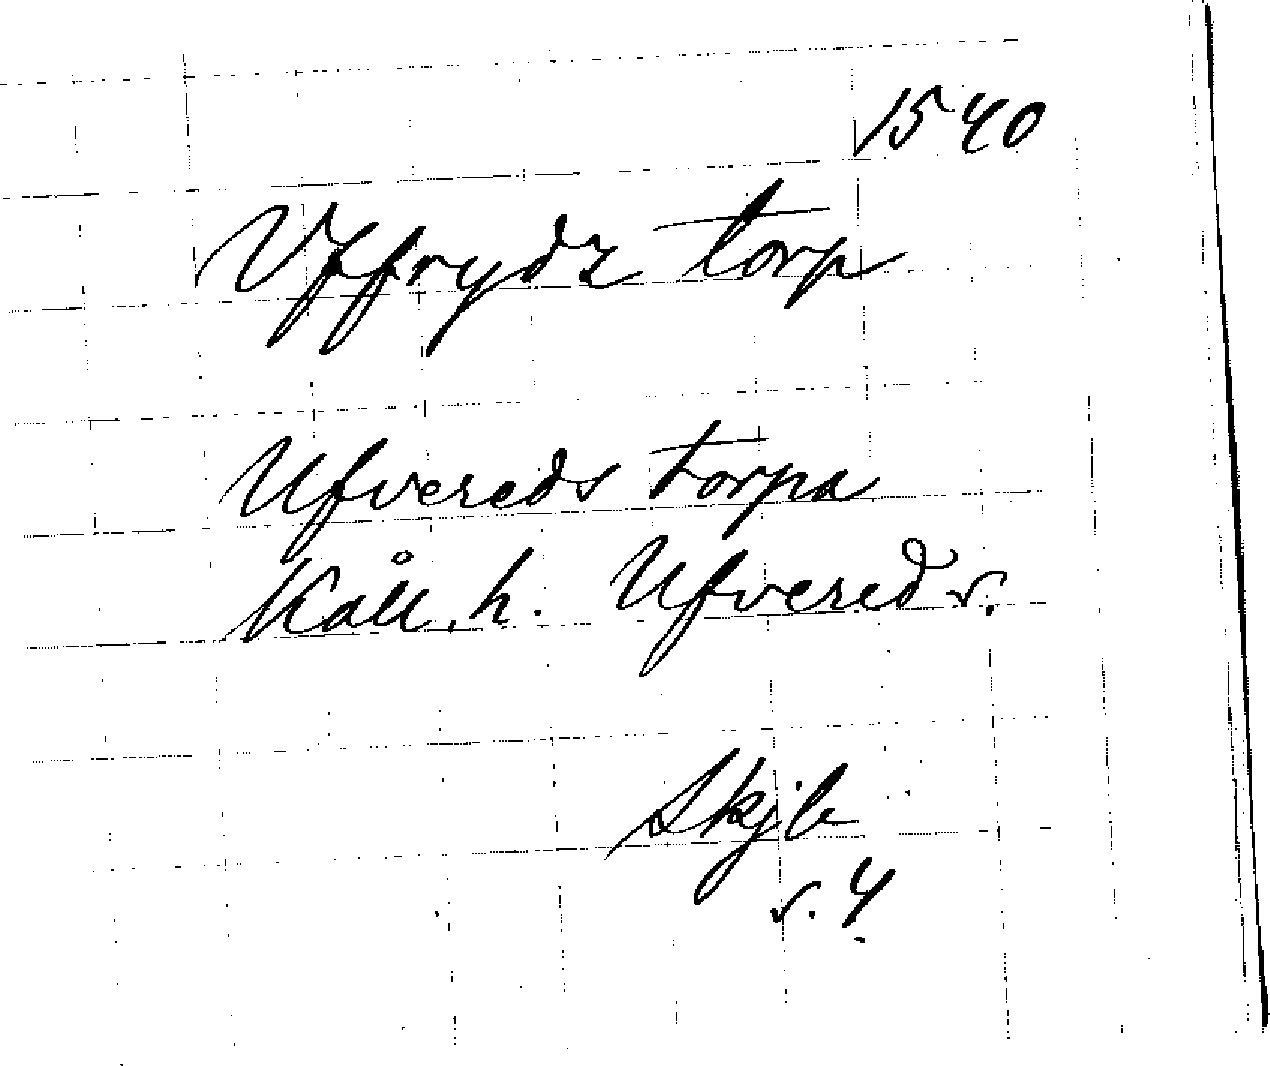 1540
Vffrydz torp
Ufvereds torpa
Kåll. h. Ufvered s.
Skjb
s. 4